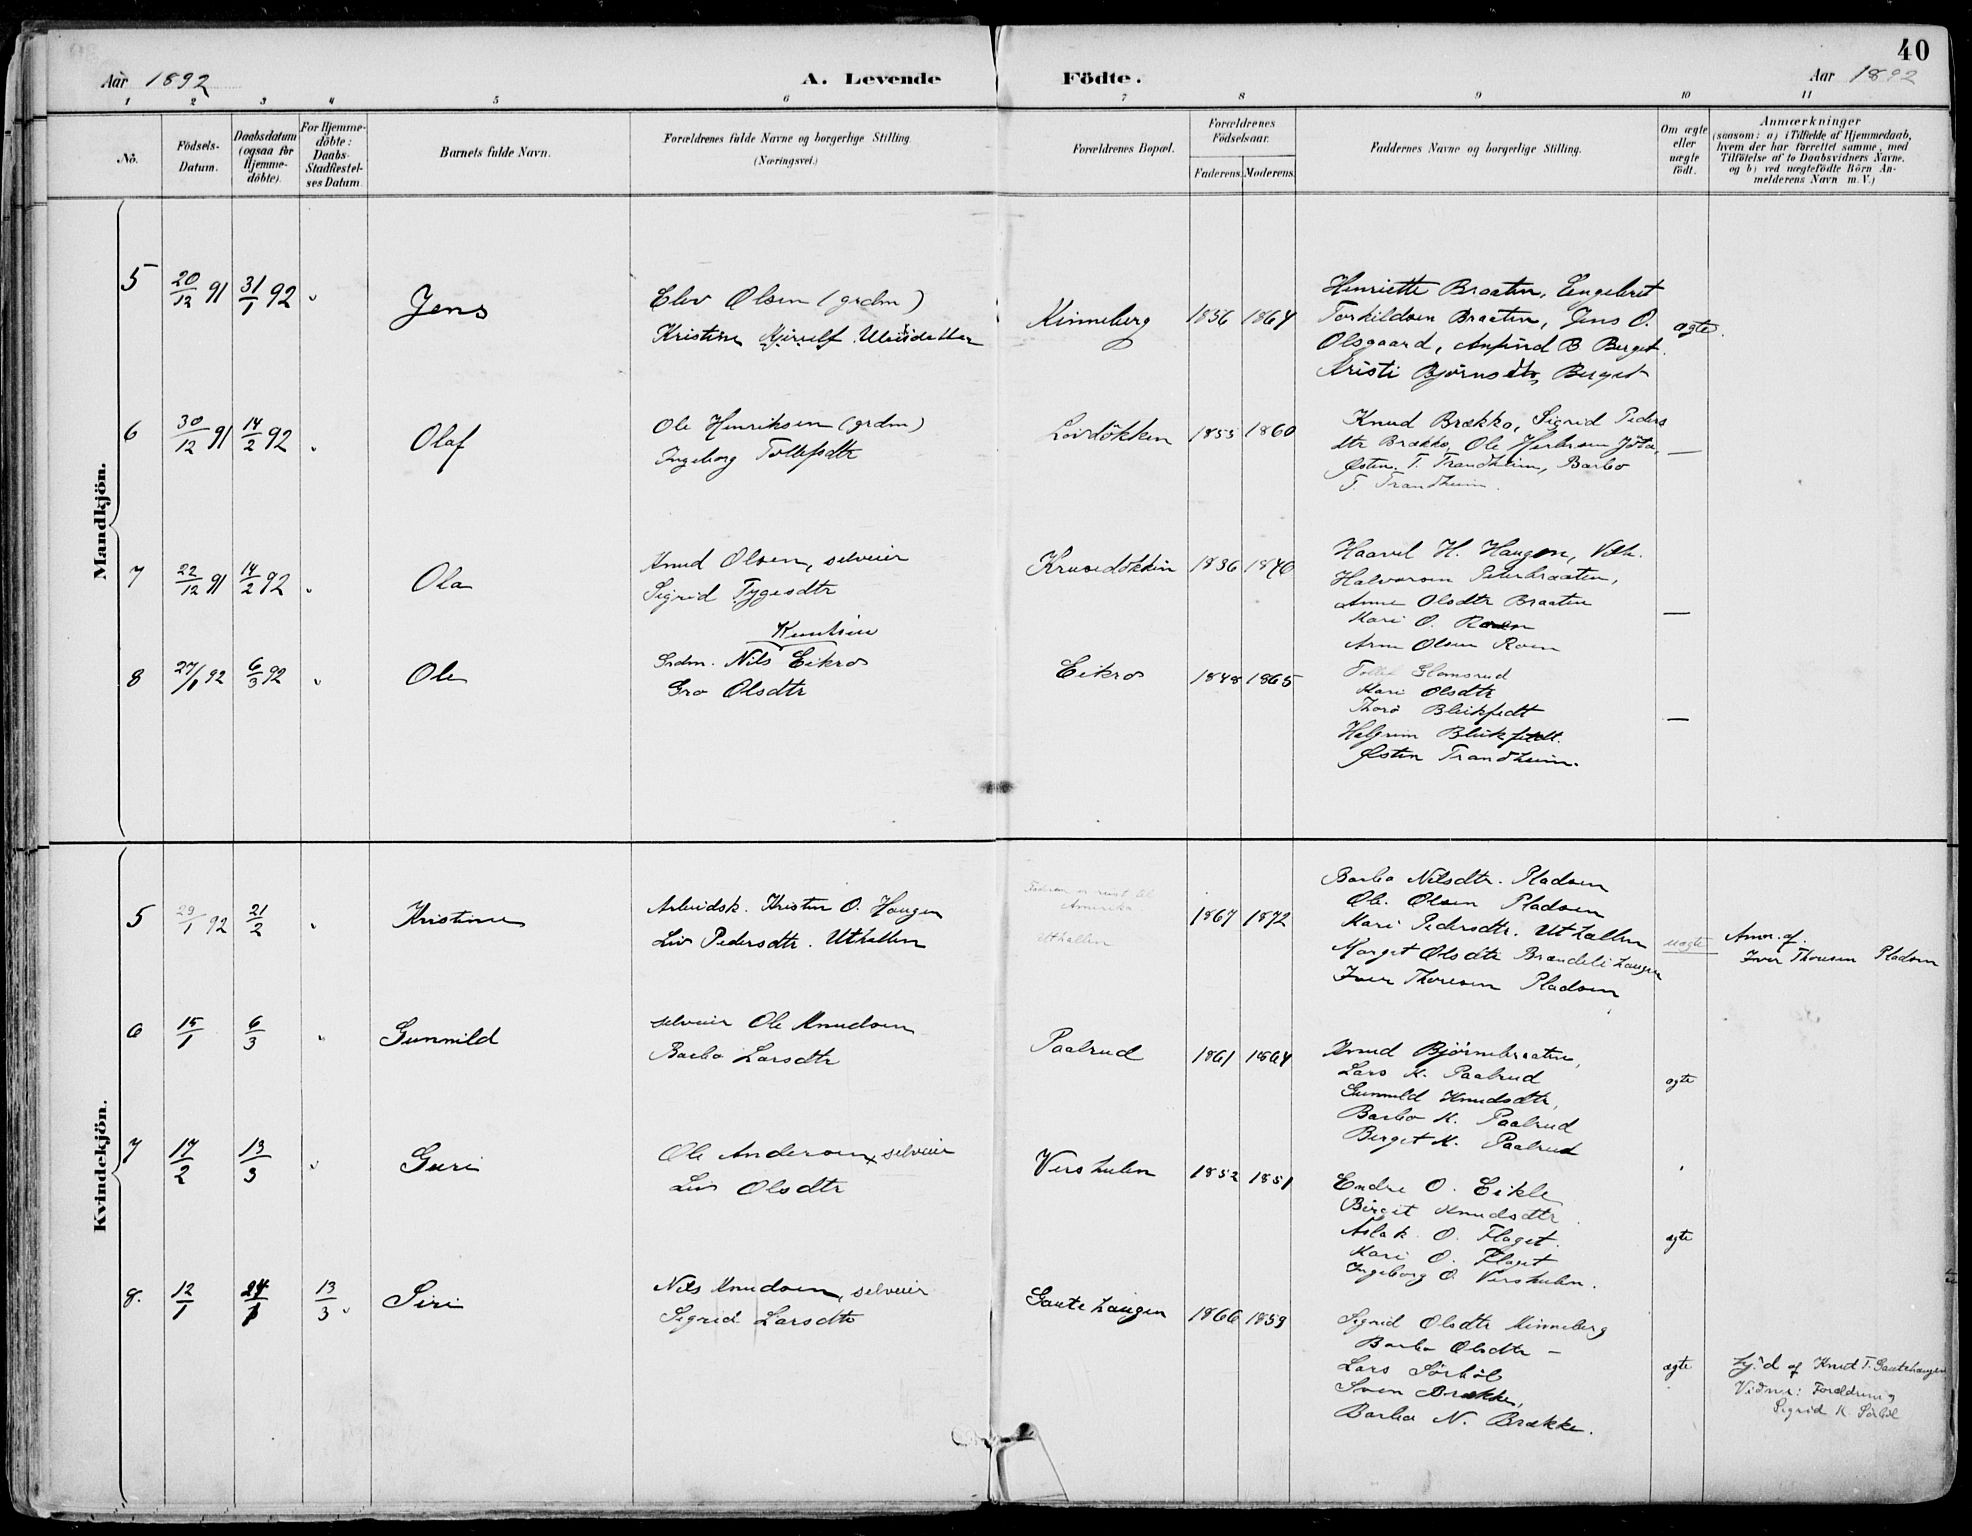 40
Aar 1892 A. Levende Födte. Aar 1892
1 2 3 4 5 6 7 8 9 10 11
No.
Födsels-
Datum.
Daabsdatum
(ogsaa för
Hjemme-
döbte).
For Hjemme-
döbte:
Daabs-
Stadfæstel-
ses Datum.
Barnets fulde Navn.
Forældrenes fulde Navne og borgerlige Stilling.
(Næringsvei.)
Forældrenes Bopæl.
Forældrenes
Födselsaar.
Faderens. Moderens.
Faddernes Navne og borgerlige Stilling.
Om ægte
eller
uægte
födt.
Anmærkninger
(saasom: a) i Tilfælde af Hjemmedaab,
hvem der har forrettet samme, med
Tilföielse af to Daabsvidners Navne,
og b) ved uægtefödte Börn An-
melderens Navn m. V.)
Mandkjön.
5 20/12 91 31/1 92 Jens
Elev Olsen (grdm)
Kristine
Kinneberg 1856 1864
Henriette Braaten, Engebret
Torkildsen Braaten, Jens O.
Olsgaard, Anfind B Berget.
Kristi Bjørnsdtr, Berget
ægte.
6 30/12 91 14/2 92 Olaf
Ole Henriksen (grdm)
Ingeborg Tollefsdtr
1855 1860
Knud Brækko, Sigrid Peders
dtr Brækko, Ole
Østen T. Trandheim, Barbo
T. Trandheim.
—
7 22/12 91 14/2 92 Ola
Knud Olsen, selveier
Sigrid Tygesdtr
1836 1846
Haavel H. Haugen,
Halvorsen Peterbraaten,
Anne Olsdtr Braaten
Kari O. Roen
Arne Olsen Roen
—
8 27/1 92 6/3 92 Ole
Knutsen
Grdm. Nils Eikro
Gro Olsdtr
Eikro 1848 1865
Tollef Glomsrud
Kari Olsdtr
Thorø
Halgrim
Østen Trandheim.
—
Kvindekjön.
5 29/1 92 21/2 Kristine
Arbeidsk. Kristen O. Haugen
Liv Pedersdtr. Uthallen
Faderen er reist til
Amerika
Uthallen
1867 1872
Barbo Nilsdtr. Pladsen
Ole Olsen Pladsen
Kari Pedersdtr. Uthallen
Marget Olsdtr Brændelihaugen
Iver Thoresen Pladsen
uægte
Anm. af.
Iver Thoresen Pladsen
6 15/1 6/3 Gunnild
selveier Ole Knudsen
Barbo Larsdtr
Paalrud 1861 1864
Knud Bjørnebraaten,
Lars K. Paalrud
Gunnild Knudsdtr,
Barbo K. Paalrud
Berget K. Paalrud
ægte
7 17/2 13/3 Guri
Ole Andersen, selveier
Liv Olsdtr
Vershulen 1852 1851
Endre O. Eikle
Birget Knudsdtr
Aslak O. Flaget.
Kari O. Flaget
Ingeborg O. Vershulen.
ægte
8. 12/1 24/1 13/3 Siri
Nils Knudsen, selveier
Sigrid Larsdtr
Gautehaugen 1866 1859
Sigrid Olsdtr Kinneberg
Barbo Olsdtr —
Lars Sørbøl
Sven Brække,
Barbo N. Brække.
ægte
Hj.d af Knut T. Gautehaugen
Vidner: Forældren og
Sigrid K. Sørbøl